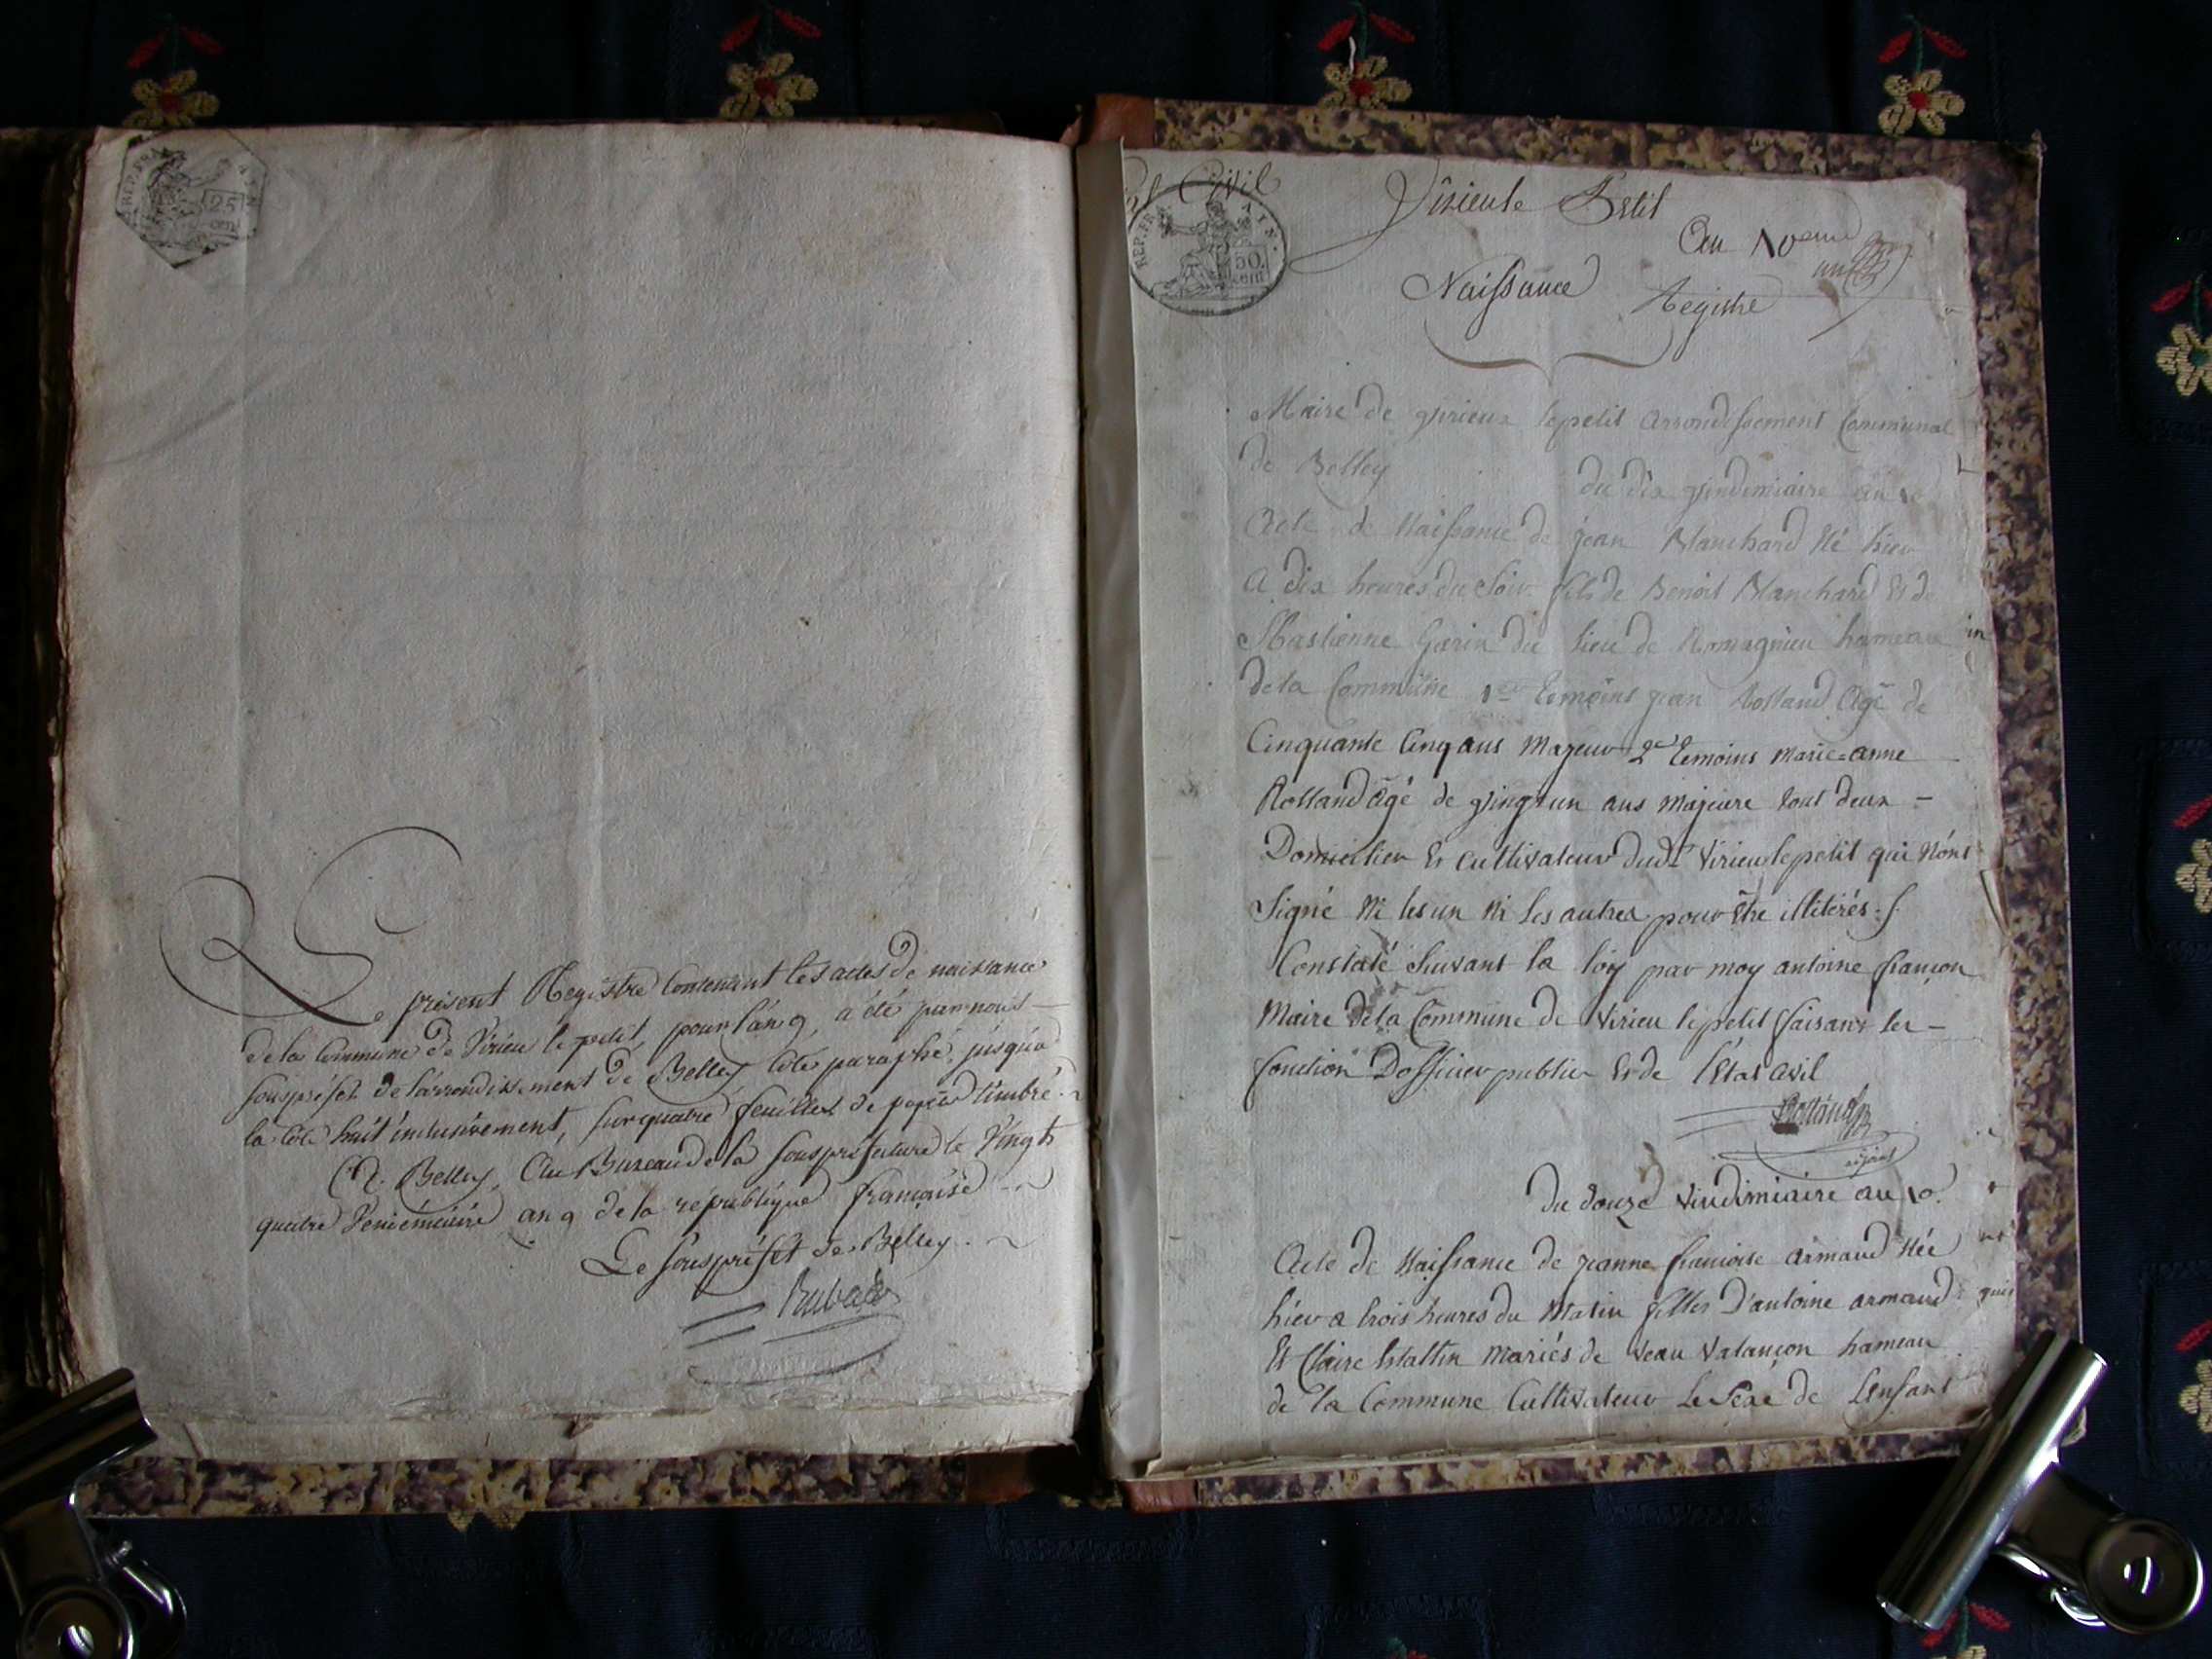 REP. FRA
25
cen
Le présent Registre contenant les actes de naissance
de la Commune de Virieu le petit, pour l'an 9, a été par nous
souspréfet de l'arrondissement de Belley coté paraphé, jusqu'a
la cote huit inclusivement, sur quatre feuilles de papier timbré
A Belley, Au Bureau de la souspréfecture le Vingt
quatre Vendémiaire an 9 de la république française
Le souspréfet de Belley.
Civil
REP. FRA
50.
cen
Virieu le Petit
An 10eme
un
Naissance Registre
Maire de virieux lepetit arrondissement Communal
de Belley
du dix vindimiaire an 10
Acte de Naissance de jean Blanchard Né hier
a dix heures du Soir fils de Benoit Blanchard Et de
Garin du lieu de Romagnieu hameau
de la Commune 1er temoins jean Rolland Agé de
Cinquante Cinq ans Majeur 2d temoins Marie=anne
Rolland âgé de vingt un ans Majeure tout deux -
Domicilier Et cultivateur dudt Virieu lepetit qui N'ont
Signé Ni les un Ni Les autres pour être illitérés
Constaté Suivant la loy par moy antoine françon
Maire de la Commune de Virieu lepetit faisant les -
fonction D'officier publier Et de l'Etat Civil
Rolland
adjoint
du douze Vindimiaire an 10.
Acte de Naissance de jeanne françoise armand Née
hier a trois heures du Matin filles D'antoine armand
Et Claire Mariés de Veau Valançon hameau
de la Commune Cultivateur Le Pere de L'enfant